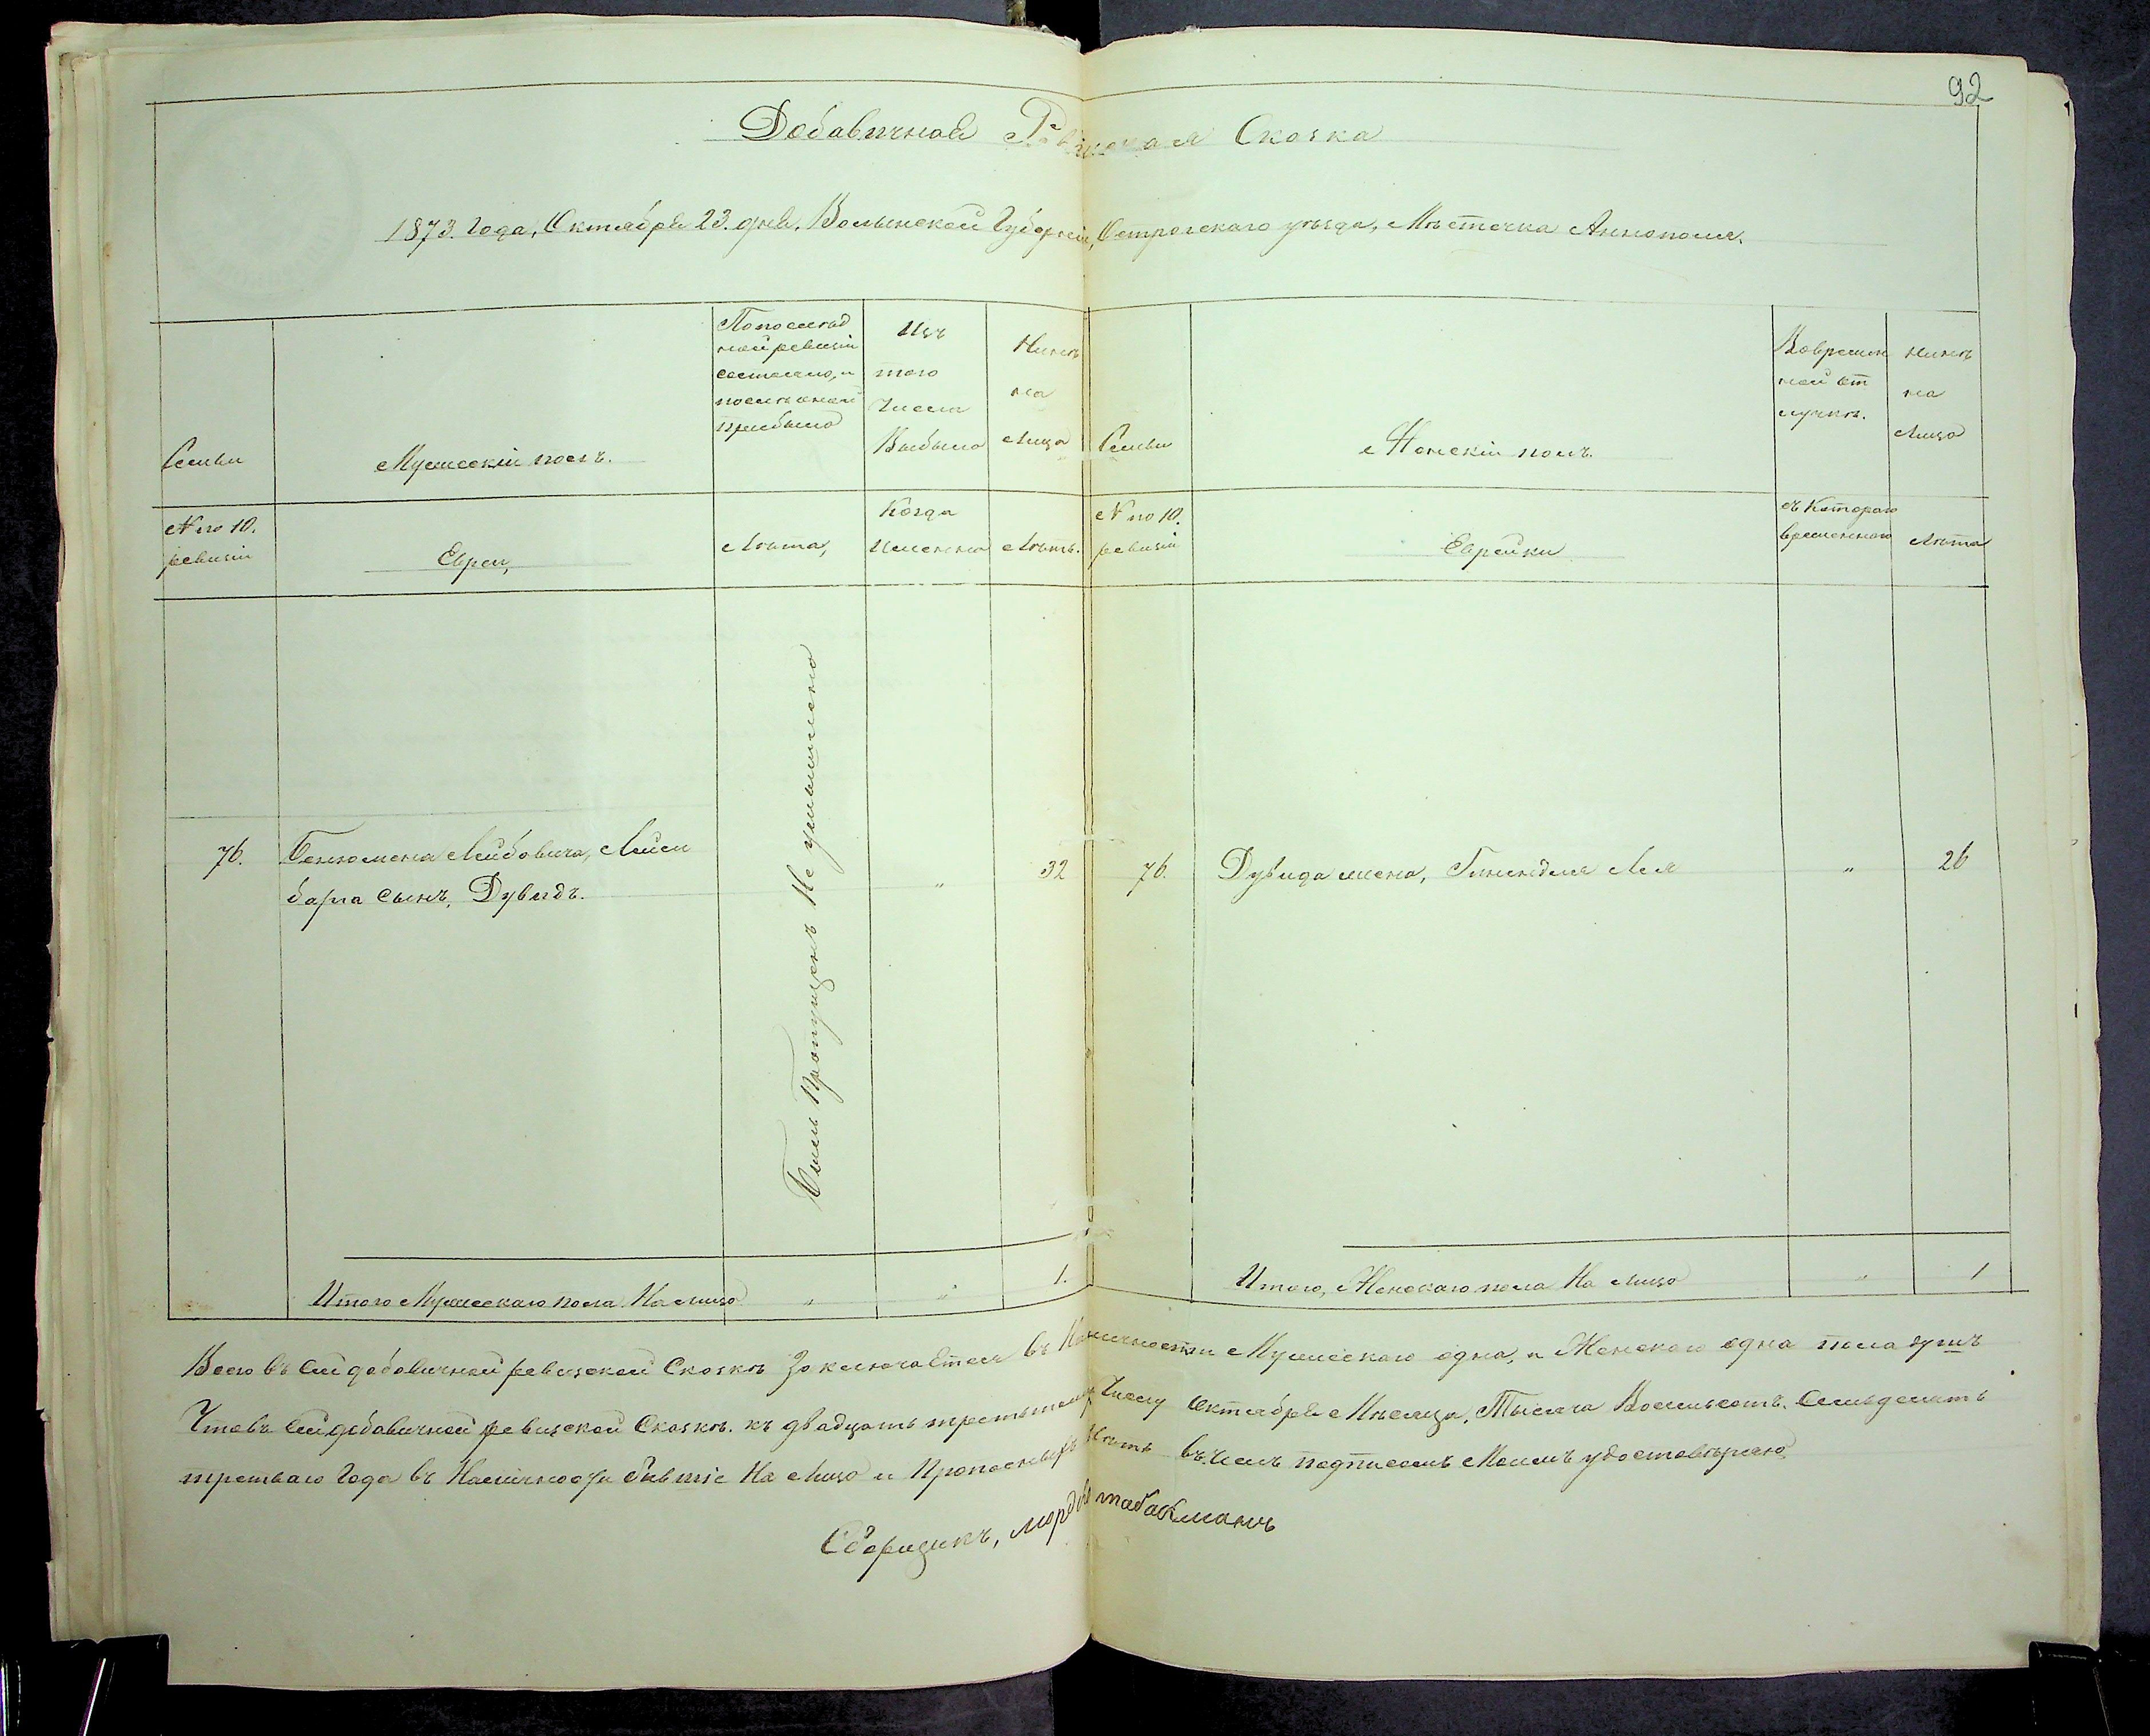 92
Добавичная Ревизская Скозка
1873. Года, Октября 23. дня, Волынской Губерніи, Острогскаго уѣзда, Мѣстечка Аннополя.
Семьи
Мужескій полъ.
По послѣд
ней ревизіи
состояло, и
послѣ оной
прибыло
Изъ
того
Числа
Выбыло
Нынѣ
на
Лицо
Семьи
Женскій полъ.
Вовремен
ной от
лучкѣ.
нынѣ
на
Лицо
№ по 10.
ревизіи
Евреи,
Лѣта,
Когда
Именно
Лѣтъ.
№ по 10.
ревизіи
Еврейки
съ Котораго
временного
Лѣта
76.
Бенюмена Лейбовича, Лейзи
барга сынъ, Дувидъ.
Былъ Пропущенъ Не умышленно
"
32
76.
Дувида жена, Гинендля Лея
"
26
Итого Мужескаго пола На лицо
"
"
1.
Итого, Женскаго пола На лицо
"
1
Всего въ сей добавичной ревизской Скозкѣ Заключается въ Наличности Мужескаго одна, и Женскаго одна пола душъ
Чтовъ сей добавичной ревизской Скозкѣ. къ двадцать третьему Числу Октября Мѣсяца, Тысяча Восемьсотъ. Семьдесятъ
третьаго Года въ Наличности бывшіе На Лицо и Прописныхъ Нѣтъ въ чемъ подписомъ Моимъ удостовѣряю,
Сборщикъ, мордко табакманъ